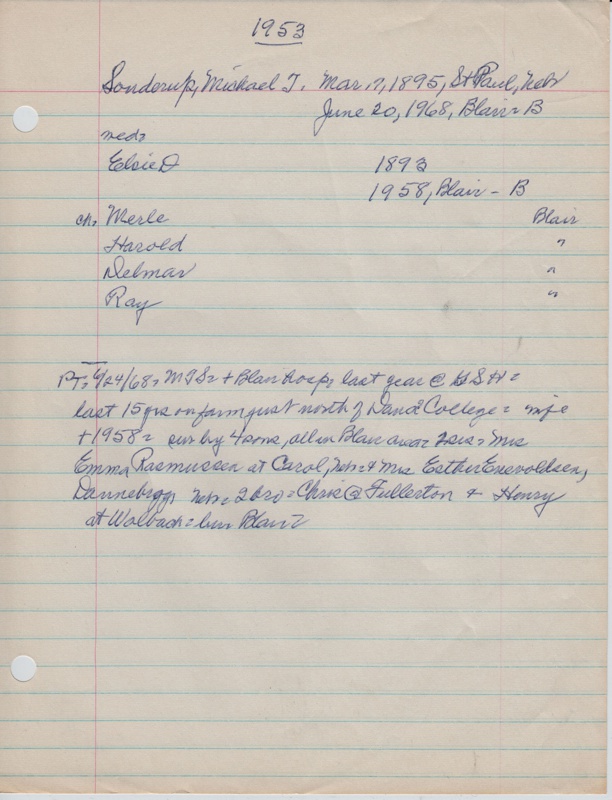 1953
Sonderup, Michael T. Mar. 7, 1895, St Paul, Nebr
June 20, 1968, Blair - B
med:
Elsie D 1893
1958, Blair - B
ch: Merle Blair
Harold "
Delmar "
Ray "
PT: 6/24/68 = MTS = + Blair hosp, last year @ GSH =
last 15 yrs on farm just north of Dana College = wife
+ 1958 = sur by 4 sons, all in Blair area = 2 sis = Mrs
Emma Rasmussen at Carol, Neb = & Mrs Esther Enevoldsen,
Dannebrog, Neb = 2 bro = Chris @ Fullerton & Henry
at Wolbach = bur Blair =